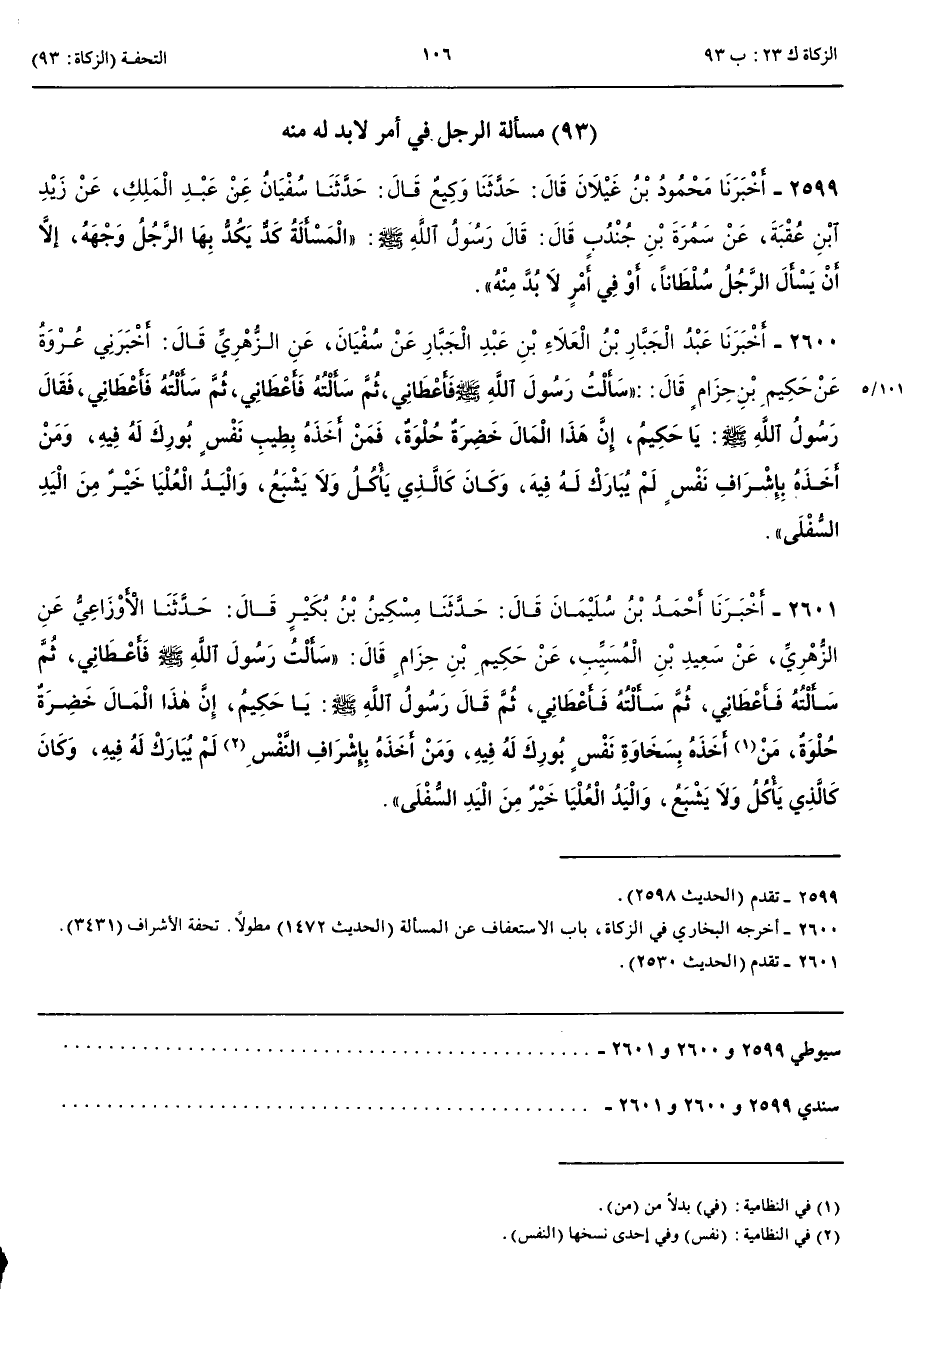 الزكاة ك ٢٣ : ب ٩٣
١٠٦
التحفة (الزكاة : ٩٣)
(٩٣) مسألة الرجل في أمر لابد له منه
٢٥٩٩ ـ أَخْبَرَنَا مَحْمُودُ بْنُ غَيْلَانَ قَالَ : حَدَّثَنَا وَكِيعٌ قَالَ : حَدَّثَنَا سُفْيَانُ عَنْ عَبْدِ الْمَلِكِ، عَنْ زَيْدِ
آبْنِ عُقْبَةَ، عَنْ سَمُرَةَ بْنِ جُنْدُبٍ قَالَ : قَالَ رَسُولُ اللَّهِ ﷺ : «الْمَسْأَلَةُ كَدٌّ يَكُدُّ بِهَا الرَّجُلُ وَجْهَهُ، إِلَّا
أَنْ يَسْأَلَ الرَّجُلُ سُلْطَاناً، أَوْ فِي أَمْرٍ لَا بُدَّ مِنْهُ».
٢٦٠٠ ـ أَخْبَرَنَا عَبْدُ الْجَبَّارِ بْنُ الْعَلَاءِ بْنِ عَبْدِ الْجَبَّارِ عَنْ سُفْيَانَ، عَنِ الزُّهْرِيِّ قَالَ : أَخْبَرَنِي عُرْوَةُ
عَنْ حَكِيمِ بْنِ حِزَامٍ قَالَ : :«سَأَلْتُ رَسُولَ اللَّهِ ﷺ فَأَعْطَانِي، ثُمَّ سَأَلْتُهُ فَأَعْطَانِي، ثُمَّ سَأَلْتُهُ فَأَعْطَانِي، فَقَالَ
٥/١٠١
رَسُولُ اللَّهِ ﷺ : يَا حَكِيمُ، إِنَّ هَذَا الْمَالَ خَضِرَةٌ حُلْوَةٌ، فَمَنْ أَخَذَهُ بِطِيبِ نَفْسٍ بُورِكَ لَهُ فِيهِ، وَمَنْ
أَخَذَهُ بِإِشْرَافِ نَفْسٍ لَمْ يُبَارَكْ لَهُ فِيهِ، وَكَانَ كَالَّذِي يَأْكُلُ وَلَا يَشْبَعُ، وَالْيَدُ الْعُلْيَا خَيْرٌ مِنَ الْيَدِ
السُّفْلَى».
٢٦٠١ ـ أَخْبَرَنَا أَحْمَدُ بْنُ سُلَيْمَانَ قَالَ : حَدَّثَنَا مِسْكِينُ بْنُ بُكَيْرٍ قَالَ : حَدَّثَنَا الْأَوْزَاعِيُّ عَنِ
الزُّهْرِيِّ، عَنْ سَعِيدِ بْنِ الْمُسَيِّبِ، عَنْ حَكِيمِ بْنِ حِزَامٍ قَالَ : «سَأَلْتُ رَسُولَ اللَّهِ ﷺ فَأَعْطَانِي، ثُمَّ
سَأَلْتُهُ فَأَعْطَانِي، ثُمَّ سَأَلْتُهُ فَأَعْطَانِي، ثُمَّ قَالَ رَسُولُ اللَّهِ ﷺ : يَا حَكِيمُ، إِنَّ هٰذَا الْمَالَ خَضِرَةٌ
حُلْوَةٌ، مَنْ(١) أَخَذَهُ بِسَخَاوَةِ نَفْسٍ بُورِكَ لَهُ فِيهِ، وَمَنْ أَخَذَهُ بِإِشْرَافِ النَّفْسِ(٢) لَمْ يُبَارَكْ لَهُ فِيهِ، وَكَانَ
كَالَّذِي يَأْكُلُ وَلَا يَشْبَعُ، وَالْيَدُ الْعُلْيَا خَيْرٌ مِنَ الْيَدِ السُّفْلَى».
٢٥٩٩ ـ تقدم (الحديث ٢٥٩٨).
٢٦٠٠ ـ أخرجه البخاري في الزكاة، باب الاستعفاف عن المسألة (الحديث ١٤٧٢) مطولاً. تحفة الأشراف (٣٤٣١).
٢٦٠١ ـ تقدم (الحديث ٢٥٣٠).
سيوطي ٢٥٩٩ و ٢٦٠٠ و ٢٦٠١ ـ ................................................
سندي ٢٥٩٩ و ٢٦٠٠ و ٢٦٠١ ـ ................................................
(١) في النظامية : (في) بدلاً من (من).
(٢) في النظامية : (نفس) وفي إحدى نسخها (النفس).